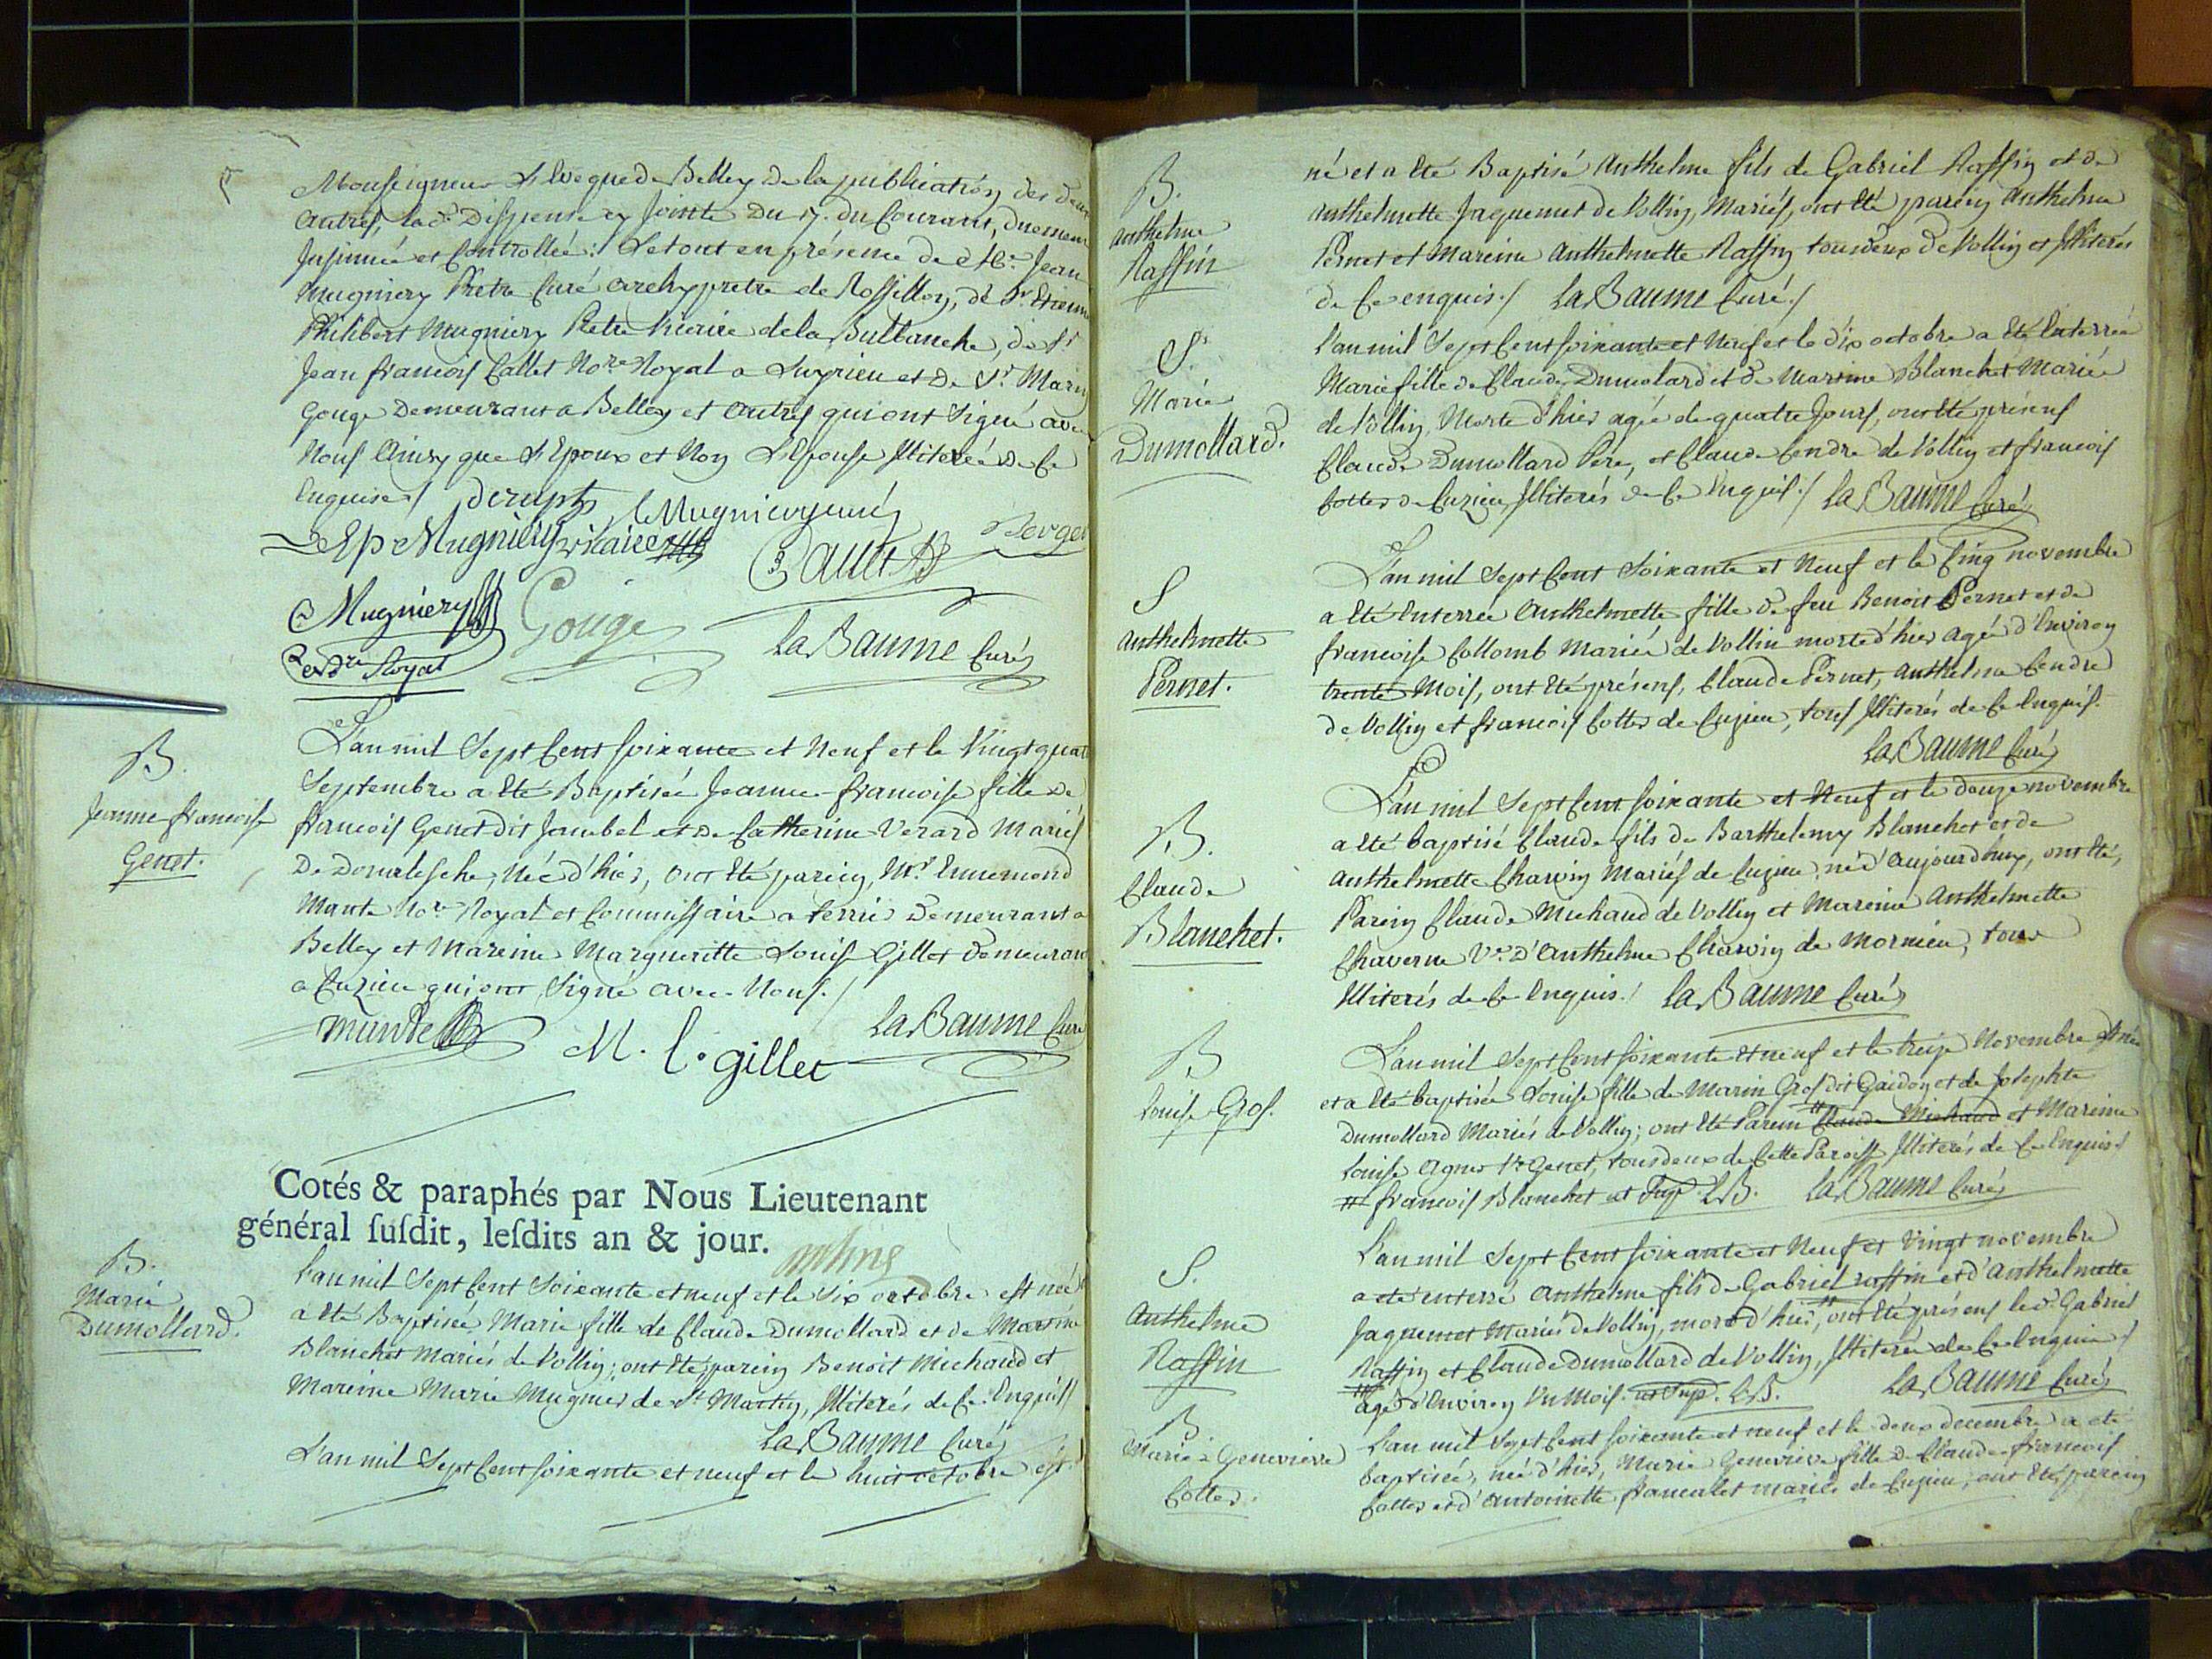 Monseigneur L'Eveque de Belley de la publication des deux
autres, lad.e Dispense cy jointe du 17. du Courant, duement
Insinuée et Controllée: Le tout en présence de Me. Jean
Mugniery Prêtre Curé archyprêtre de Rossillon, de Sr Etienne
Philibert Mugniery Prêtre Vicaire de la Burbanche, de Sr
Jean francois Callet No.re Royal a Luyrieu et de Sr. Marin
Gouge Demeurant a Belley et autres qui ont Signé avec
Nous Ainsy que L'Epoux et Non L'Epouse Illiterée de Ce
Enquise./
E p Mugniery vicaire
Callet
Mugniery
Gouge
La Baume Curé
Royal
B.
Jeanne francoise
Genet.
L'an mil Sept Cent soixante et Neuf et le Vingt quatre
Septembre a Eté Baptisée Jeanne francoise fille de
francois Genet dit Janbel et de Catherine Verard Mariés
De Donalesche, Née d'hier, ont Eté parein, Mr. Ennemond
Mante No.re Royal et Commissaire a terrier Demeurant a
Belley et Mareine Margueritte Louise Gillet Demeurant
a Cuzieu qui ont Signé avec Nous./
mante
M. l. gillet
La Baume Curé
Cotés & paraphés par Nous Lieutenant
général ſuſdit, leſdits an & jour.
B.
Marie
Dumollard.
L'an mil Sept Cent Soixante et neuf et le Six octobre est née
a Eté Baptisée Marie fille de Claude Dumollard et de Marine
Blanchet mariés de Vollin; ont Eté parein Benoit Michaud et
Mareine Marie Mugnier de St Martin, Illiterés de Ce Enquis./
La Baume Curé
L'an mil Sept Cent soixante et neuf et le huit octobre est
B.
Anthelme
Raffin
né et a Eté Baptisé Anthelme fils de Gabriel Raffin et de
Anthelmette Jaquemet de Vollin, Mariés, ont Eté parein Anthelme
Pernet et Mareine Anthelmette Raffin tous deux de Vollin et Illiterés
de Ce enquis./ La Baume Curé./
S.
Marie
Dumollard.
L'an mil Sept Cent soixante et Neuf et le dix octobre a Eté Enterrée
Marie fille de Claude Dumolard et de Marine Blanchet Mariée
de Vollin, Morte d'hier agée de quatre Jours, ont Eté présens
Claude Dumollard Père, et Claude Cendre de Vollin et francois
Cottes de Cuzieu, Illiterés de Ce Enquis./ La Baume Curé
S
Anthelmette
Pernet.
L'an mil Sept Cent Soixante et Neuf et le Cinq novembre
a Eté Enterrée Anthelmette fille de feu Benoit Pernet et de
francoise Collomb Mariée de Vollin morte d'hier agée d'Environ
trente Mois, ont Eté présens, Claude Pernet, Anthelme Cendre
de Vollin et francois Cottes de Cuzieu, tous Illiterés de Ce Enquis.
La Baume Curé
B.
Claude
Blanchet.
L'an mil Sept Cent soixante et Neuf et le douze novembre
a Eté baptisé Claude fils de Barthelemy Blanchet et de
Anthelmette Charvin Mariés de Cuzieu, né d'aujourdhuy, ont Eté,
Parein Claude Michaud de Vollin et Mareine Anthelmette
Chaverne Ve. d'Anthelme Charvin de Mornieu, tous
Illiterés de Ce Enquis./ La Baume Curé
B
Louise Gros.
L'an mil Sept Cent soixante et neuf et le treize Novembre est née
et a Eté baptisée Louise fille de Marin Gros dit Gaidon et de Josephte
Dumollard Mariés de Vollin; ont Eté Parein # Claude Michaud et Mareine
Louise Agnes Ve Genet, tous deux de Cette Paroisse Illiterés de Ce Enquis./
# francois Blanchet ut Sup. L.B. La Baume Curé
S.
Anthelme
Raffin
L'an mil Sept Cent soixante et Neuf et Vingt novembre
a eté enterré Anthelme fils de Gabriel raffin et d'Anthelmette
Jaquemet Mariés de Vollin, mort d'hier, # ont Eté présens led. Gabriel
Raffin et Claude Dumollard de Vollin, Illiterés de Ce Enquis./
# agé d'Environ Un Mois. ut Sup. L.B. La Baume Curé
B
Marie Genevieve
Cottes.
L'an mil Sept Cent soixante et neuf et le deux decembre a eté
baptisée, née d'hier, Marie Genevieve fille de Claude francois
Cottes et d'Antoinette francalet mariés de Cuzieu, ont Eté parein